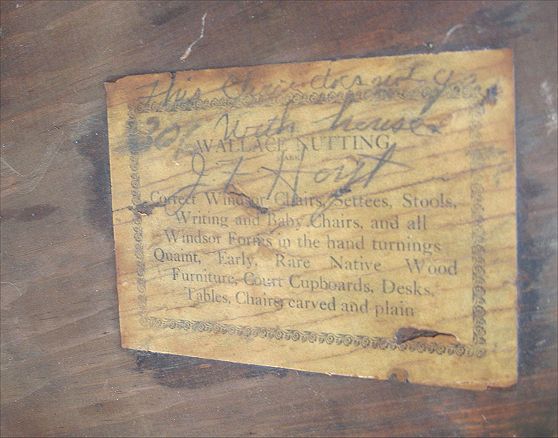 This Chair does not go
301 With house.
WALLACE NUTTING
J L Hoyt
Correct Windsor Chairs, Settees, Stools,
Writing and Baby Chairs, and all
Windsor Forms in the hand turnings
Quaint, Early, Rare Native Wood
Furniture, Court Cupboards, Desks,
Tables, Chairs, carved and plain